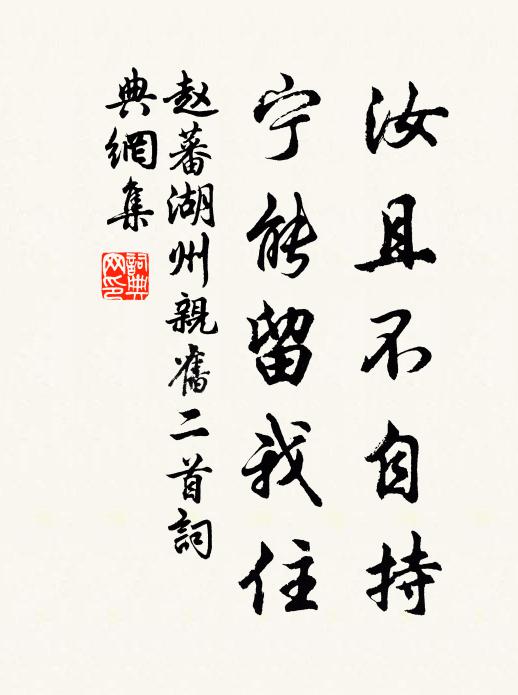 汝且不自持
宁能留我住
赵蕃湖州親舊二首詞
典網集
詞典
网印